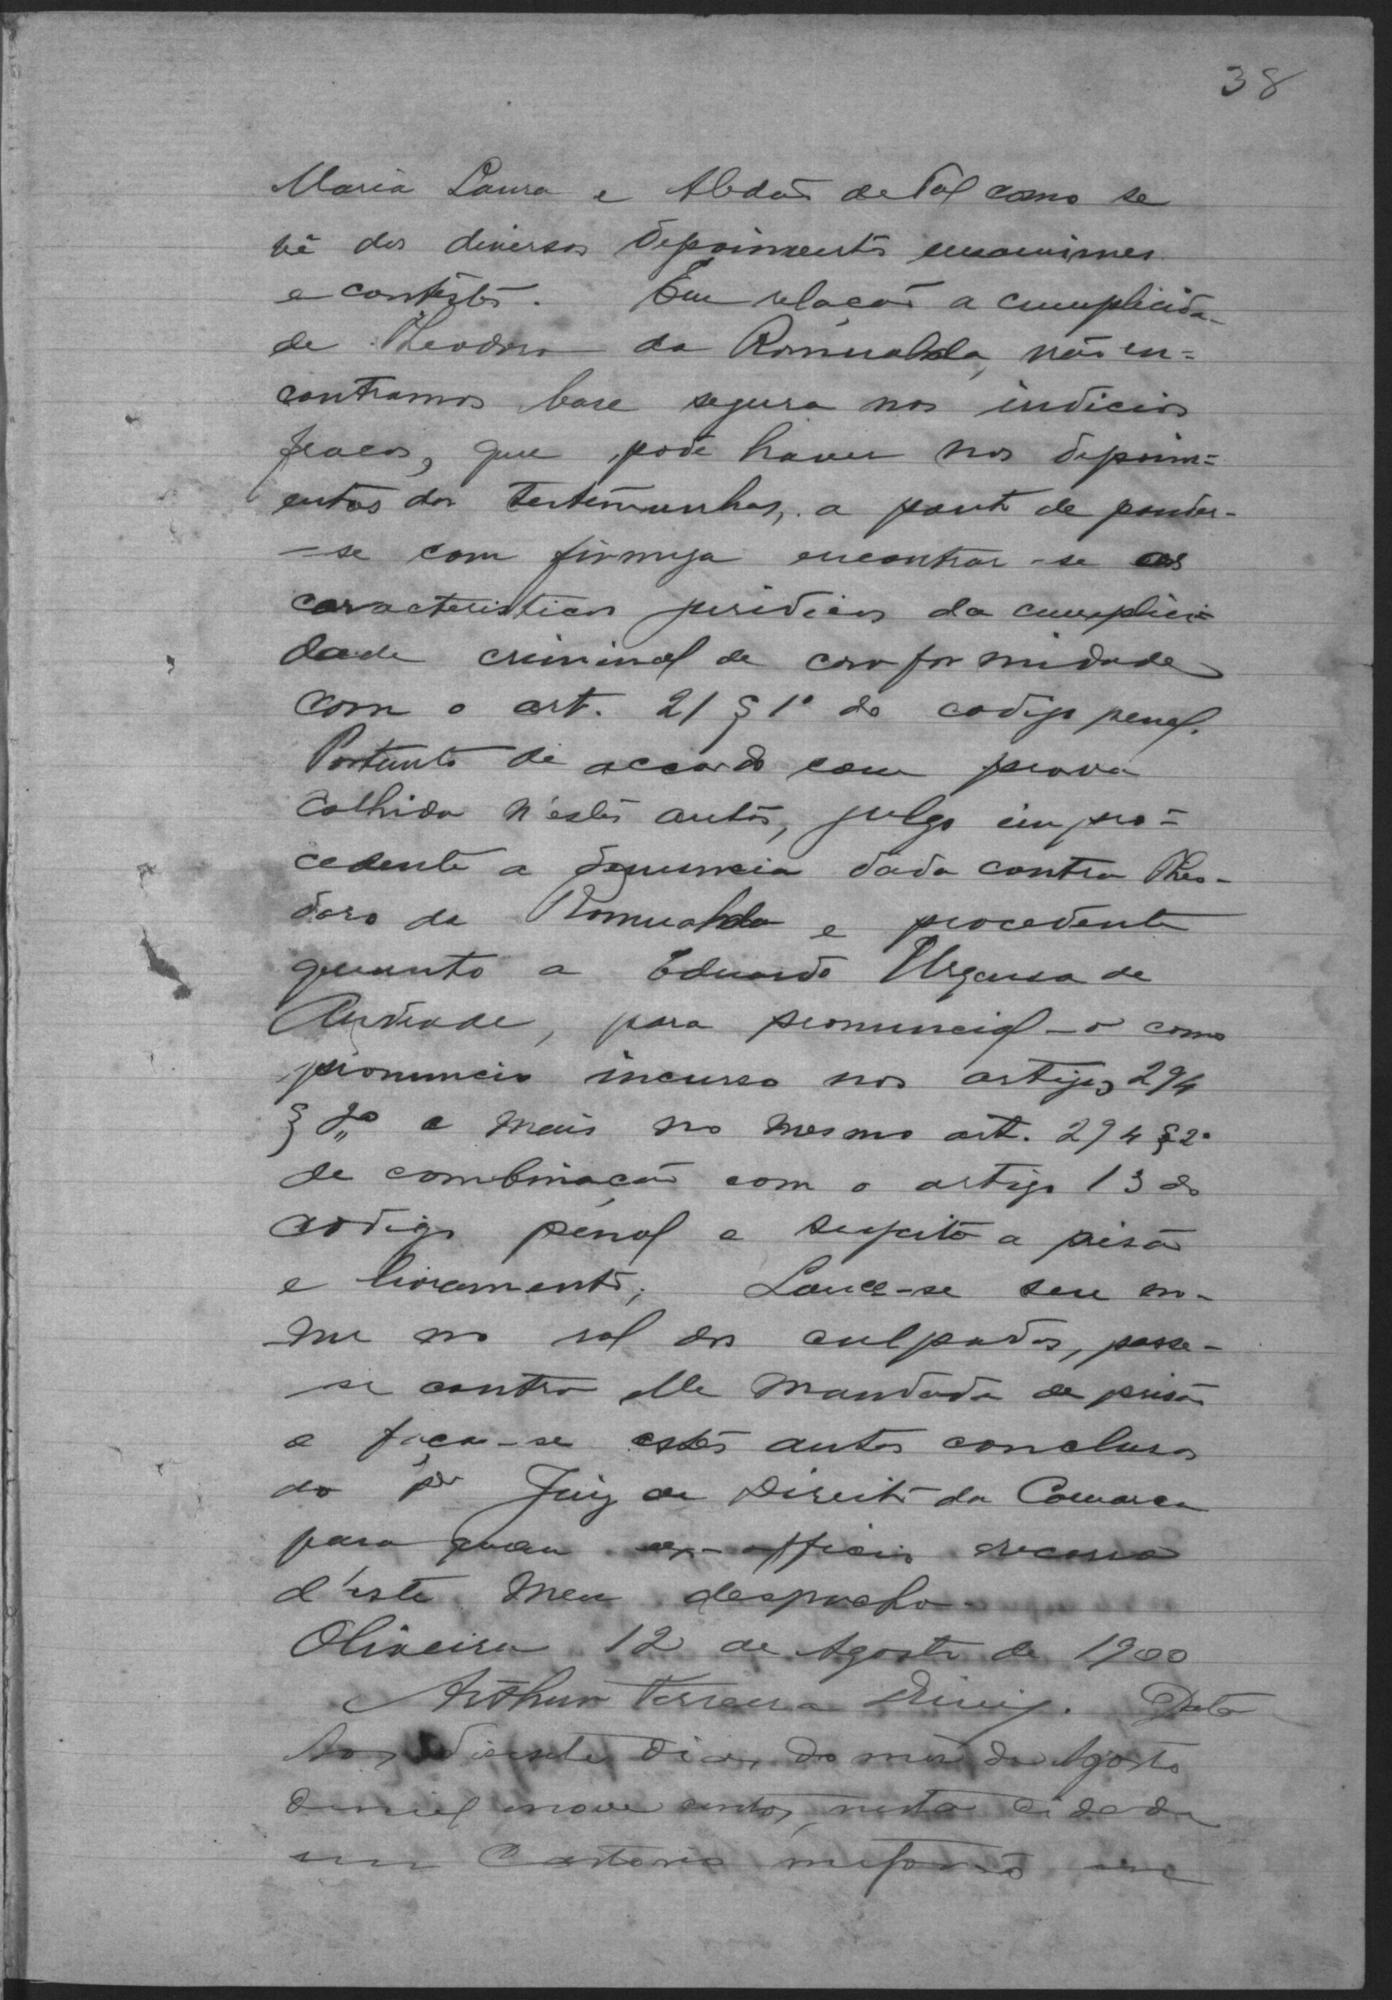 38
Maria Laura e Abdão de Tal como se
vê dos diversos depoimentos unanimes
e contestes. Em relação a cumplicida-
de Theodoro da Romualda, não en=
contramos base segura nos indicios
fracos, que pode haver nos depoim=
entos das testemunhas, a ponto de poder-
-se com firmeza encontrar-se os
caracteristicos juridicos da cumplici=
dade criminal de conformidade
com o art. 21 § 1º do codigo penal.
Portanto de accordo com prova
colhida n'estes autos, julgo impro=
cedente a denuncia dada contra Theo-
doro da Romualda e procedente
quanto a Eduardo de
Andrade, para pronuncial-o como
pronuncio incurso nos artigos 294
§ 2º e mais no mesmo art. 294 § 2º
de combinação com o artigo 13 do
codigo penal e sujeito a prisão
e livramento; Lance-se seu no-
me no rol dos culpados, passe-
se contra elle mandado de prisão
e faça-se estes autos conclusos
ao Juiz de Direito da Comarca
para quem ex-officio recorro
d'este meu despacho.
Oliveira 12 de Agosto de 1900
Arthur Ferreira Diniz. Data
Aos dias do mes de Agosto
de mil e nove centos, nesta cidade
em Cartorio me foi